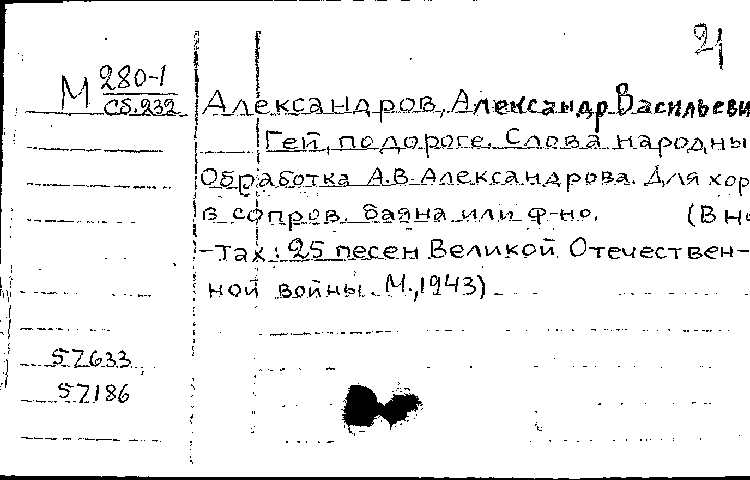 21
М 280-1
Сб.232
Александров, Александр Васильеви
Гей, по дороге. Слова народны
Обработка А.В. Александрова. Для хор
в сопров. баяна или ф-но. (В но
-тах: 25 песен Великой Отечествен-
ной войны. М., 1943)
57633
57186